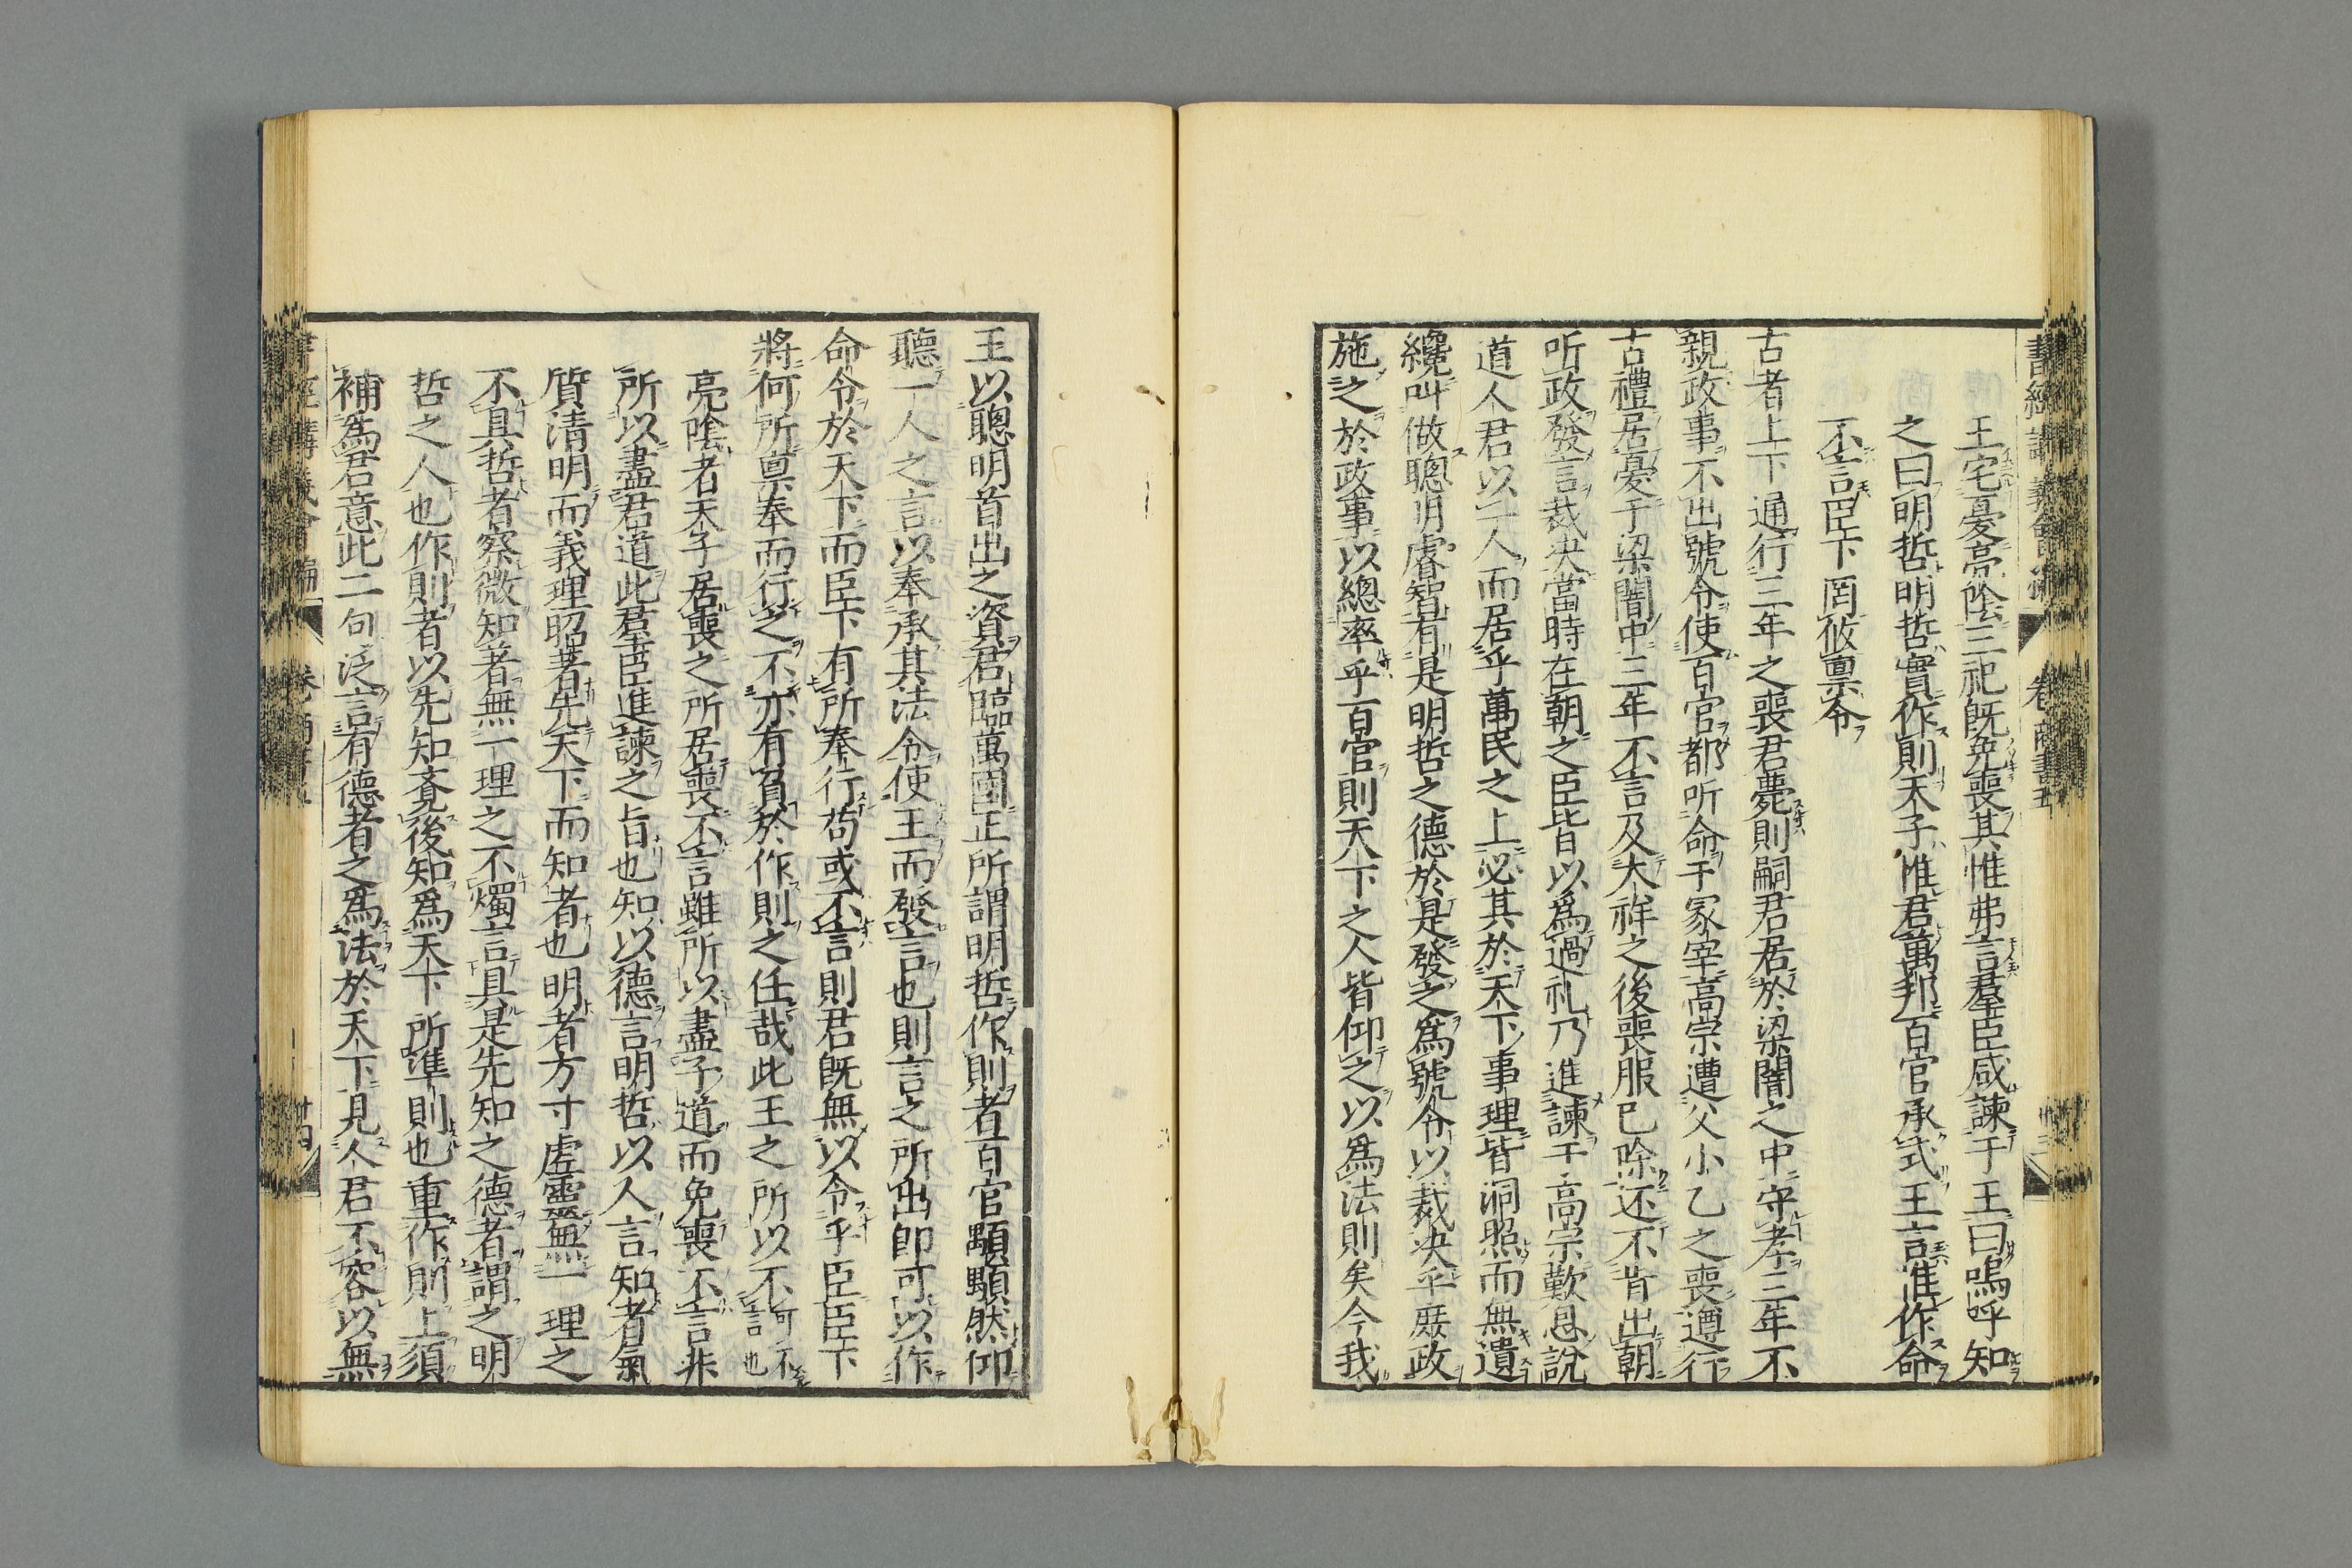 書經講義會編 卷 商書五
王宅憂亮陰三祀既免喪其惟弗言羣臣咸諫于王曰嗚呼知
之曰明哲明哲實作則天子惟君萬邦百官承式王言惟作命
不言臣下罔攸稟令
古者上下通行三年之喪君薨則嗣君居於梁闇之中守孝三年不
親政事不出號令使百官都听命于冢宰高宗遭父小乙之喪遵行
古禮居憂于梁闇中三年不言及大祥之後喪服已除还不肯出朝
听政發言裁决當時在朝之臣皆以爲過礼乃進諫于高宗歎息說
道人君以一人而居乎萬民之上必其於天下事理皆洞照而無遺
纔叫做聰明睿智有是明哲之德於是發之爲號令以裁决乎庶政
施之於政事以總率乎百官則天下之人皆仰之以爲法則矣今我
王以聰明首出之資君臨萬國正所謂明哲作則者百官顒顒然仰
聽一人之言以奉承其法令使王而發言也則言之所出卽可以作
命令於天下而臣下有所奉行苟或不言則君既無以令乎臣臣下
將何所稟奉而行之不亦有負於作則之任哉此王之所以不可不言也
亮陰者天子居喪之所居喪不言雖所以盡子道而免喪不言非
所以盡君道此羣臣進諫之旨也知以德言明哲以人言知者氣
質清明而義理昭著先天下而知者也明者方寸虛靈無一理之
不具哲者察微知著無一理之不燭言具是先知之德者謂之明
哲之人也作則者以先知覚後知爲天下所準則也重作則上須
補爲君意此二句泛言有德者之爲法於天下見人君不容以無
書經講義會編 卷 商書五 廿四